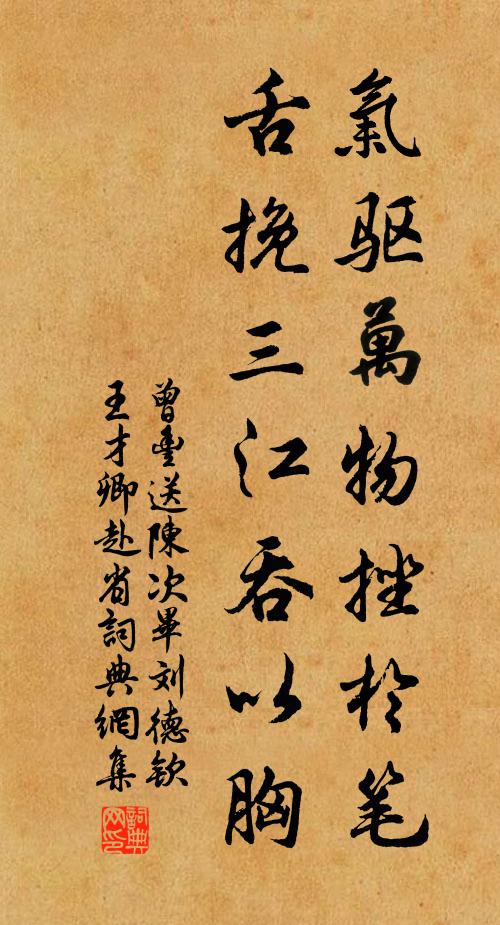 氣驱萬物挫於笔
舌挽三江吞以胸
曾豊送陳次畢刘德欽
王才卿赴省詞典網集
詞典网印